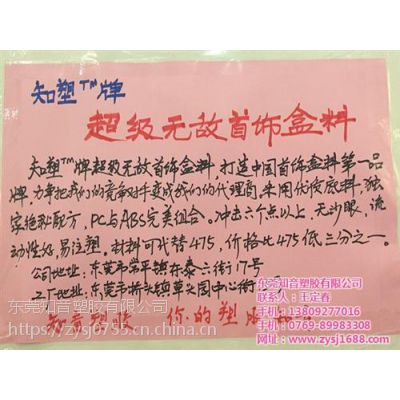 知塑™牌
超级无敌首饰盒料
知塑™牌超级无敌首饰盒料,打造中国首饰盒料第一品
牌,力争把我们的竞争对手变成我们的代理商。采用优质底料,独
家绝秘配方,PC与ABS完美组合。冲击六个点以上,无沙眼,流
动性好,易注塑。材料可代替475,价格比475低三分之一。
公司地址:东莞市常平镇东泰六街17号
工厂地址:东莞市桥头镇草尖园中心街
知音塑胶 你的塑胶
东莞知音塑胶有限公司
联系人:王定春
手机:13809277016
电话:0769-89983308
www.zysj1688.com
东莞知音塑胶有限公司
https://zysj0755.cn.china.cn